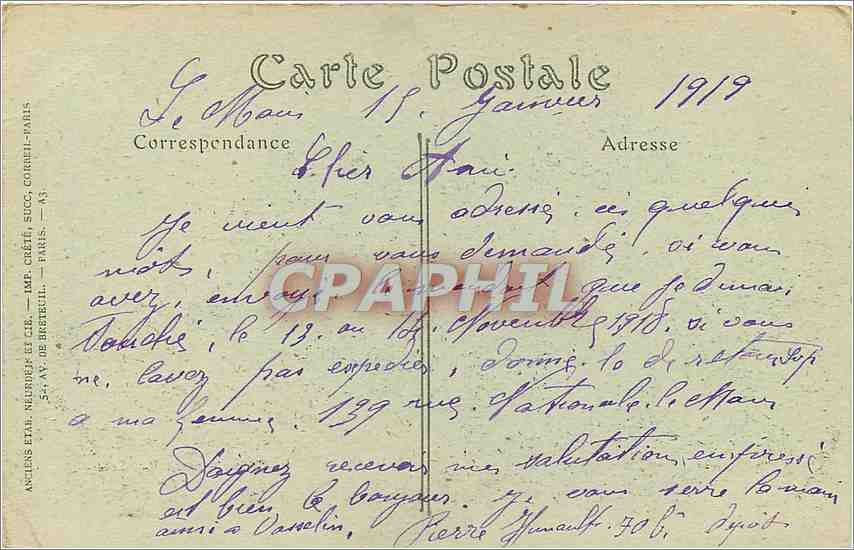 Carte Postale
Le Mans 15. Janvier 1919
Correspondance
Adresse
Cher Ami
Je vient vous adressé, ces quelques
mots, pour vous demandé, si vous
avez, envoyé, le mandat, que je devais
Touché, le 13. au 15. Novembre 1918. si vous
ne, lavez pas expédier, donné, le de retour
a ma femme. 139 rue. Nationale. le Mans
Daignez recevoir mes salutation, empressé
est bien le bonjour. je vous serre la main
ainsi a Vasselin. Pierre 70 Dépot
CPAPHIL
ANCIENS ETAB. NEURDEIN ET CIE. — IMP. CRÉTÉ, SUCC, CORBEIL-PARIS
52, AV. DE BRETEUIL. — PARIS. — A3.